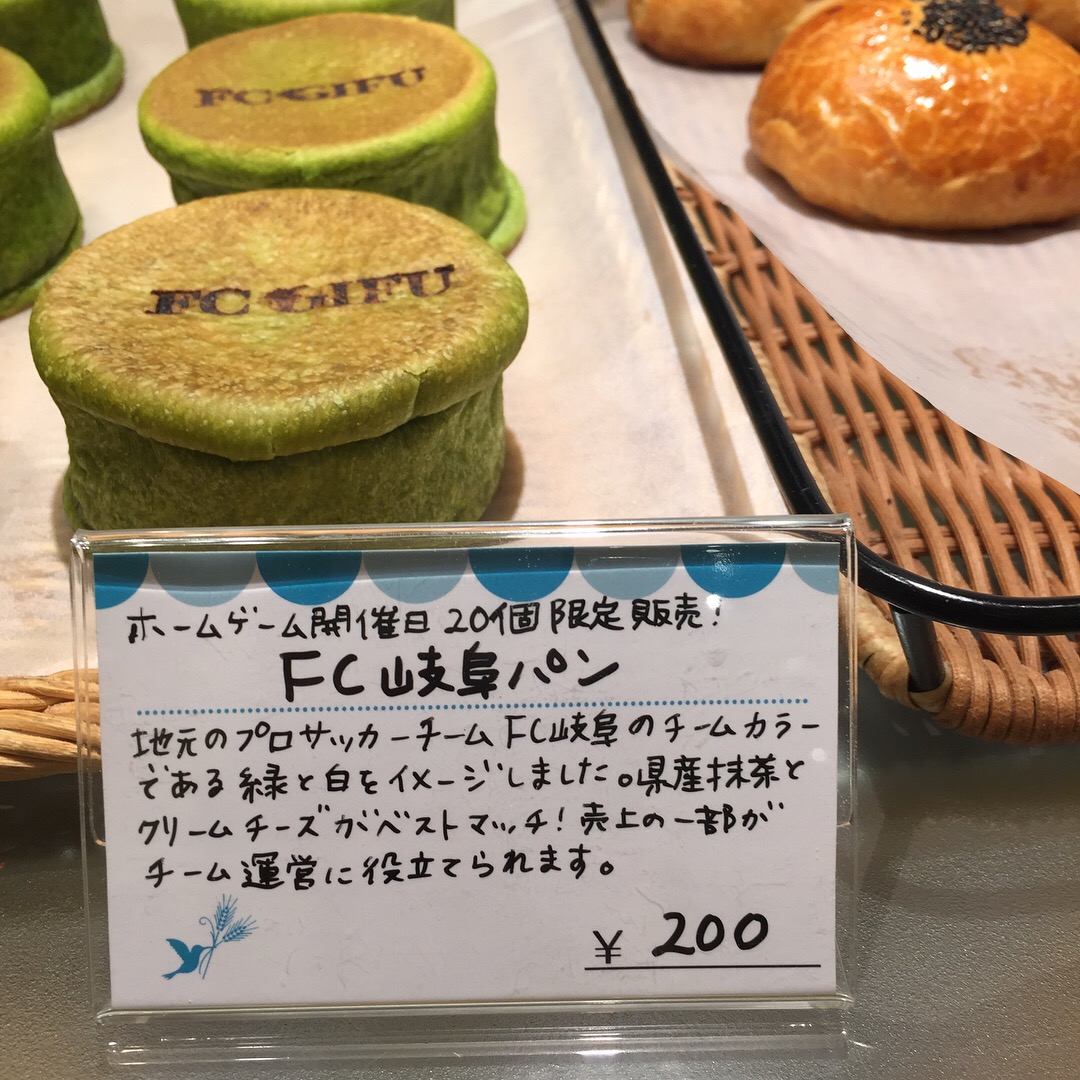 FC GIFU
FC GIFU
ホームゲーム開催日 20個限定販売!
FC岐阜パン
地元のプロサッカーチームFC岐阜のチームカラー
である緑と白をイメージしました。県産抹茶と
クリームチーズがベストマッチ!売上の一部が
チーム運営に役立てられます。
¥ 200